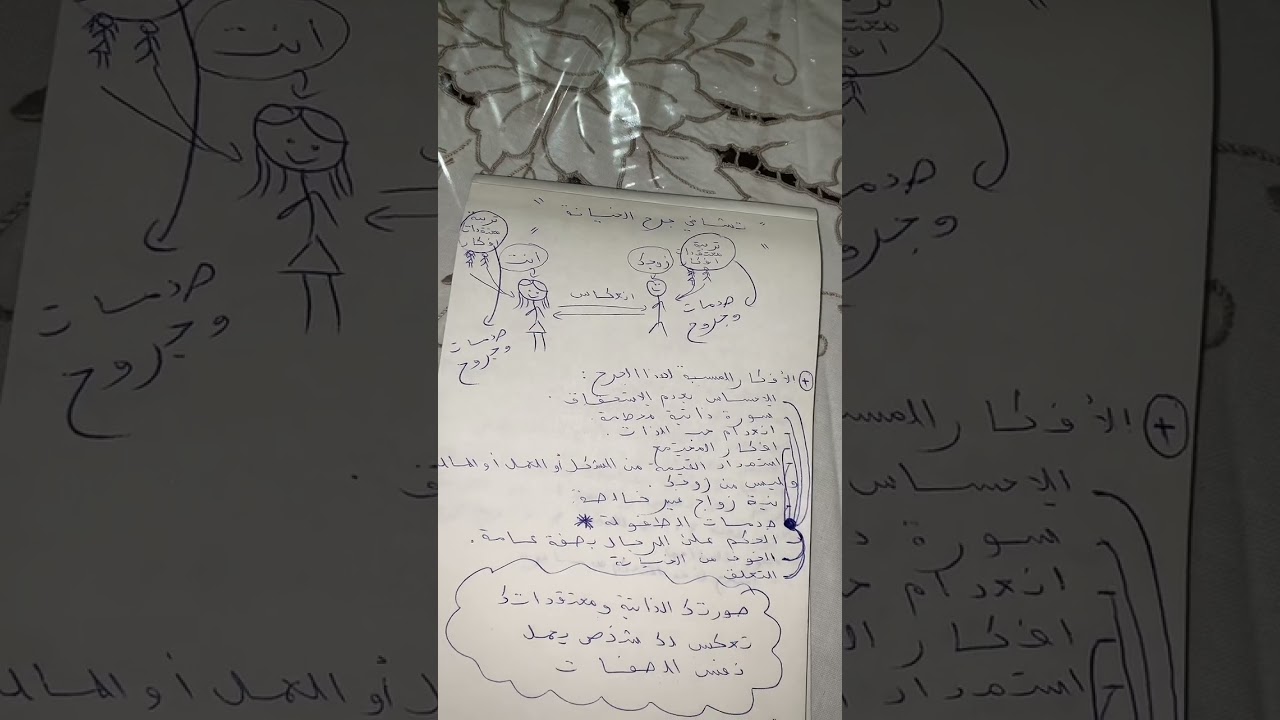 " تشافي جرح الخيانة "
تربية
معتقدات
افكار
انت
زوجك
تربية
معتقدات
افكار
انعكاس
صدمات
وجروح
صدمات
وجروح
+ الأفكار المسببة لهذا الجرح :
الإحساس بعدم الاستحقاق .
صورة ذاتية محطمة
انعدام حب الذات .
افكار المجتمع
استمداد القيمة من الشكل أو العمل أو المال
وليس من زوجك .
نية زواج غير خالصة .
صدمات الطفولة *
الحكم على الرجال بصفة عامة .
الخوف من الخيانة
التعلق
صورتك الذاتية ومعتقداتك
تعكس لك شخص يحمل
نفس الصفات